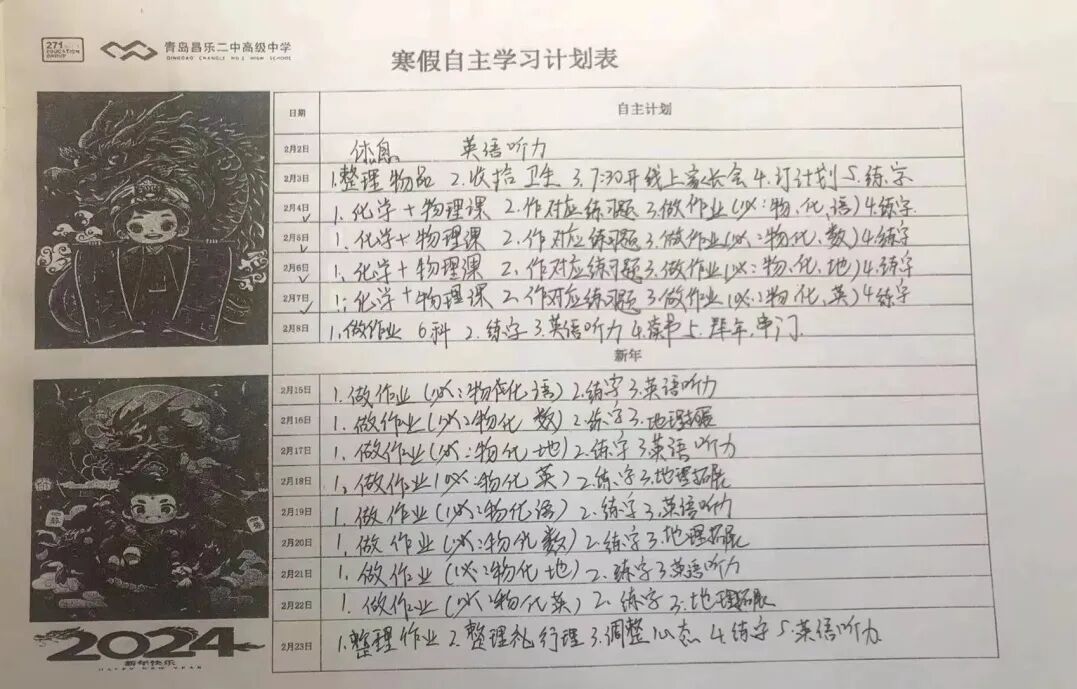 271
EDUCATION
GROUP
青岛昌乐二中高级中学
QINGDAO CHANGLE NO.2 HIGH SCHOOL
寒假自主学习计划表
日期 自主计划
2月2日 休息 英语听力
2月3日 1.整理物品 2.收拾卫生 3.7:30开线上家长会 4.订计划 5.练字
2月4日 1.化学+物理课 2.作对应练习题 3.做作业(必:物、化、语) 4.练字
2月5日 1.化学+物理课 2.作对应练习题 3.做作业(必:物化、数) 4练字
2月6日 1.化学+物理课 2.作对应练习题 3.做作业(必:物、化、地) 4.练字
2月7日 1.化学+物理课 2.作对应练习题 3.做作业(必:物化、英) 4练字
2月8日 1.做作业 6科 2.练字 3.英语听力 4.读书 5.拜年,串门.
新年
2月15日 1.做作业(必:物化语) 2.练字 3.英语听力
2月16日 1.做作业(必:物化 数) 2.练字 3.地理拓展
2月17日 1.做作业(必:物化 地) 2.练字 3英语听力
2月18日 1.做作业(必:物化英) 2.练字 3.地理拓展
2月19日 1.做作业(必:物化语) 2.练字 3.英语听力
2月20日 1.做作业(必:物化数) 2.练字 3.地理拓展
2月21日 1.做作业(必:物化地) 2.练字 3英语听力
2月22日 1.做作业(必:物化英) 2.练字 3.地理拓展
2月23日 1.整理作业 2.整理 行理 3.调整心态 4.练字 5.英语听力
2024
新年快乐
HAPPY NEW YEAR